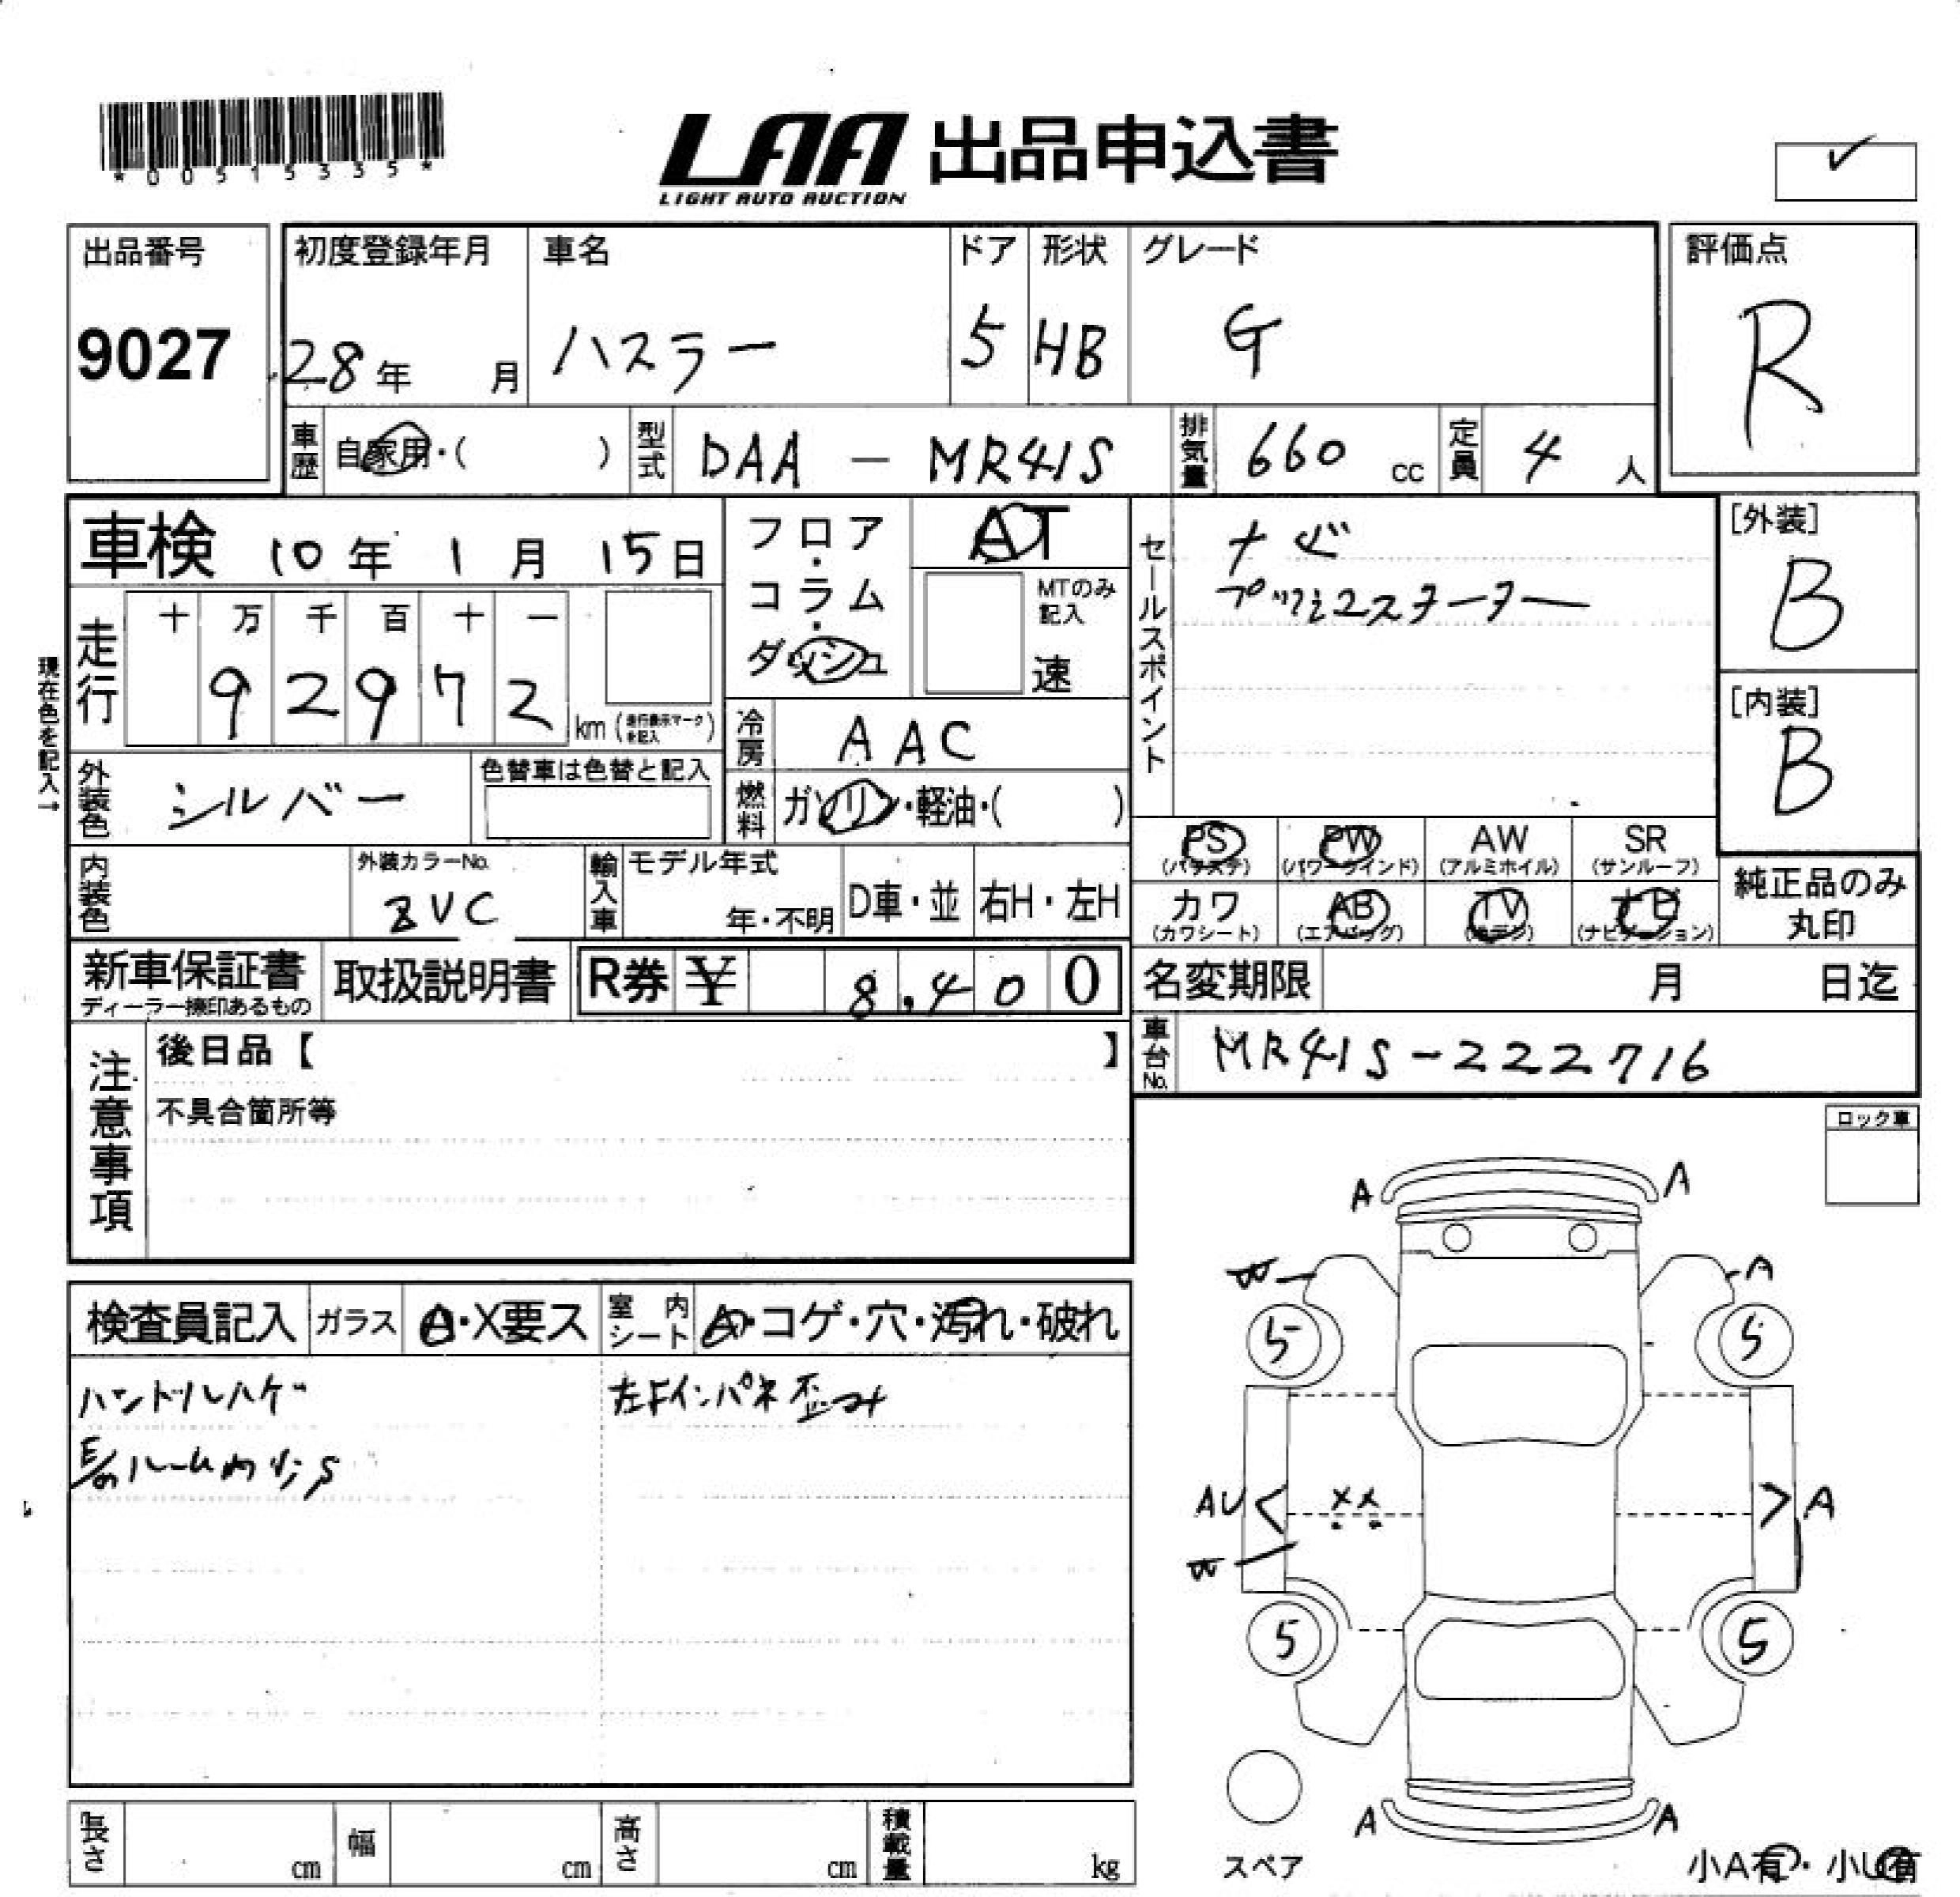 *00515335*
LAA 出品申込書
LIGHT AUTO AUCTION
✓
出品番号
9027
初度登録年月
28年 月
車名
ハスラー
ドア
5
形状
HB
グレード
G
評価点
R
車歴 自家用・( )
型式 DAA - MR41S
排気量 660 cc
定員 4 人
車検 10年 1月 15日
フロア・コラム・ダッシュ
AT
MTのみ記入
速
セールスポイント
ナビ
プッシュスターター
[外装]
B
[内装]
B
現在色を記入→
走行
十 万 千 百 十 一
9 2 9 7 2
km (走行表示マークを記入)
冷房 AAC
燃料 ガソリン・軽油・( )
外装色 シルバー
色替車は色替と記入
内装色
外装カラーNo.
ZVC
輸入車
モデル年式
年・不明
D車・並
右H・左H
PS
(パワステ)
PW
(パワーウインド)
AW
(アルミホイル)
SR
(サンルーフ)
カワ
(カワシート)
AB
(エアバッグ)
TV
ナビ
(ナビゲーション)
純正品のみ
丸印
新車保証書
ディーラー捺印あるもの
取扱説明書
R券 ¥ 8,400
名変期限 月 日迄
車台No. MR41S-222716
注意事項
後日品【 】
不具合箇所等
ロック車
検査員記入
ガラス A・X要ス
室内シート A・コゲ・穴・汚れ・破れ
ハンドルハゲ
左Fインパネ歪み
ルーム内
A A
W A
5 5
AU XX A
W
5 5
A A
スペア
小A有・小U有
長さ cm
幅 cm
高さ cm
積載量 kg